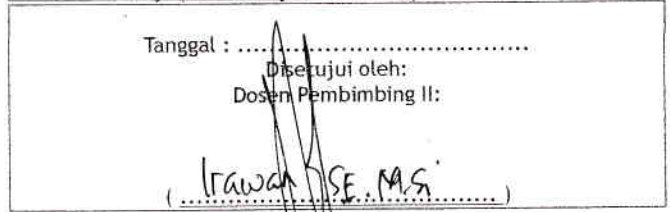 Tanggal : ......................................
Disetujui oleh:
Dosen Pembimbing II:
( Irawan, SE. M.Si )